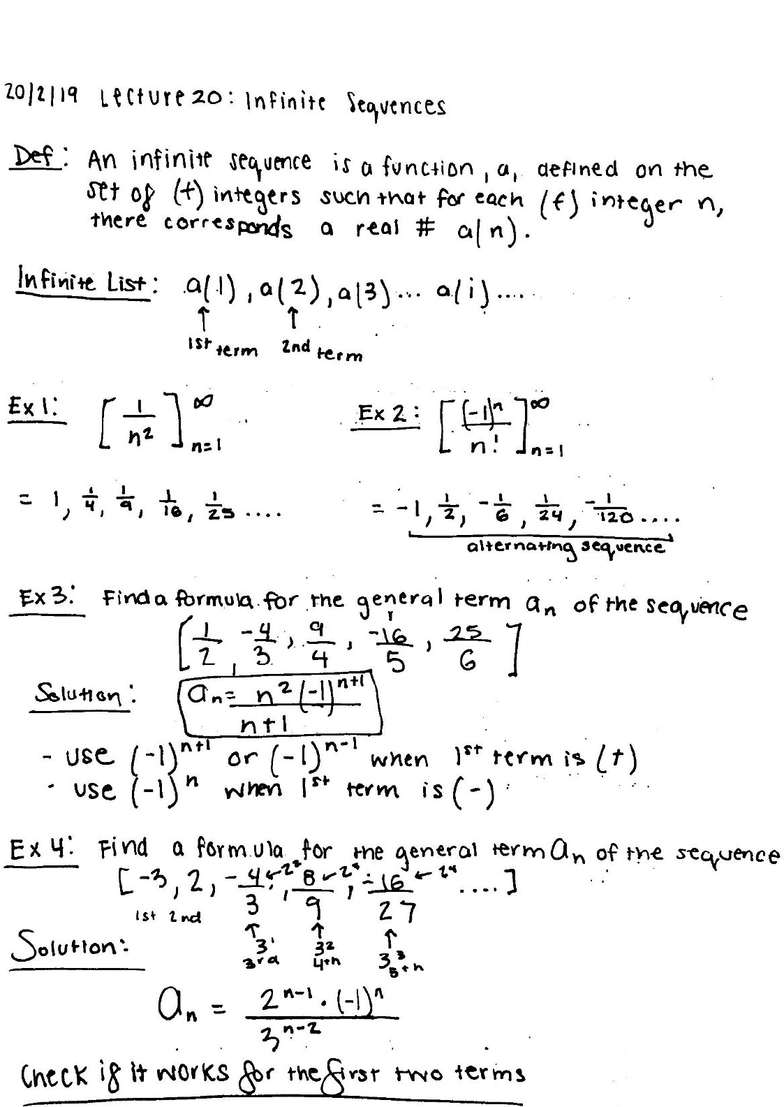 20/2/19 Lecture 20: Infinite Sequences
Def: An infinite sequence is a function, a, defined on the
set of (+) integers such that for each (+) integer n,
there corresponds a real # a(n).
Infinite List: a(1), a(2), a(3)... a(i)....
↑ ↑
1st term 2nd term
Ex 1: [1/n²]∞n=1 Ex 2: [(-1)ⁿ/n!]∞n=1
= 1, 1/4, 1/9, 1/16, 1/25 .... = -1, 1/2, -1/6, 1/24, -1/120 ....
alternating sequence
Ex 3: Find a formula for the general term aₙ of the sequence
[1/2, -4/3, 9/4, -16/5, 25/6]
Solution: aₙ = n²(-1)ⁿ⁺¹/n+1
- use (-1)ⁿ⁺¹ or (-1)ⁿ⁻¹ when 1st term is (+)
- use (-1)ⁿ when 1st term is (-)
Ex 4: Find a formula for the general term aₙ of the sequence
[-3, 2, -4/3 ←2², 8/9 ←2³, -16/27 ←2⁴ ....]
1st 2nd ↑ ↑ ↑
3¹ 3² 3³
3rd 4th 5th
Solution:
aₙ = 2ⁿ⁻¹ · (-1)ⁿ/3ⁿ⁻²
Check if it works for the first two terms